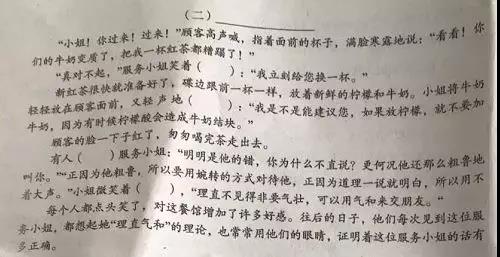 （二）
“小姐！你过来！过来！”顾客高声喊，指着面前的杯子，满脸寒霜地说：“看看！你
们的牛奶变质了，把我一杯红茶都糟蹋了！”
“真对不起，”服务小姐笑着（ ）：“我立刻给您换一杯。”
新红茶很快就准备好了，碟边跟前一杯一样，放着新鲜的柠檬和牛奶。小姐将牛奶
轻轻放在顾客面前，又轻声地（ ）：“我是不是能建议您，如果放柠檬，就不要加
牛奶，因为有时候柠檬酸会造成牛奶结块。”
顾客的脸一下子红了，匆匆喝完茶走出去。
有人（ ）服务小姐：“明明是他的错，你为什么不直说？更何况他还那么粗鲁地
叫你。”“正因为他粗鲁，所以要用婉转的方式对待他，正因为道理一说就明白，所以用不
着大声。”小姐微笑着（ ），“理直不见得非要气壮，可以用气和来交朋友。”
每个人都点头笑了，对这餐馆增加了许多好感。往后的日子，他们每次见到这位服
务小姐，都想起她“理直气和”的理论，也常常用他们的眼睛，证明着这位服务小姐的话有
多正确。